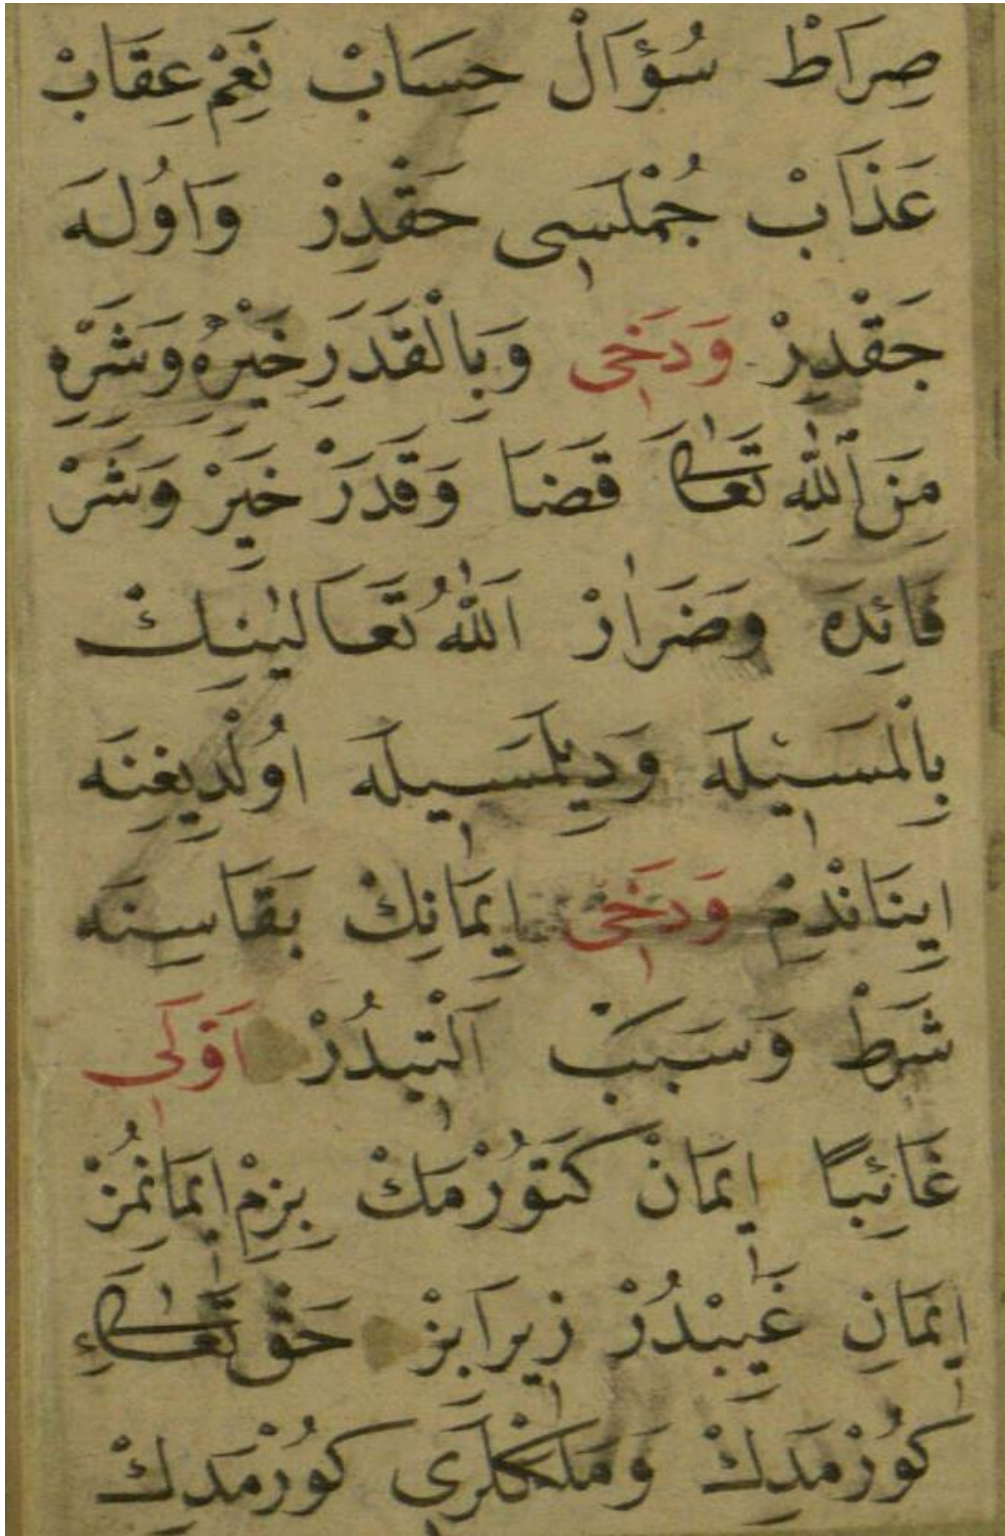 صِرَاطْ سُؤَالْ حِسَابْ نَعِمْ عِقَابْ
عَذَابْ جُمْلَسِى حَقْدِرْ وَاوُلَه
جَقْدِرْ وَدَخِى وَبِالْقَدَرِ خَيْرُهُ وَشَرِّهِ
مِنَ ٱللّٰهِ تَعَالٰى قَضَا وَقَدَرْ خَيِرْ وَشَرْ
فَائِدَه وَضَرَارْ اَللّٰهُ تَعَالٰينِكْ
بِالْمَسِيلَه وَدِيلَمَسِيلَه اوُلْدِيغِنَه
اِينَانْدِمْ وَدَخِى اِيمَانِكْ بَقَاسِنَه
شَرَطْ وَسَبَبْ اَلْتِيدُرْ اَوَّلَى
غَائِبًا اِيمَانْ كَتَوُرْمَكْ بِزِمْ اِيمَانِمُزْ
اِيمَانِ غَيْبِدُرْ زِيرَا بِزْ حَقْ تَعَالٰىءِ
كوُرْمَدِكْ وَمَلَكْلَرِى كوُرْمَدِكْ